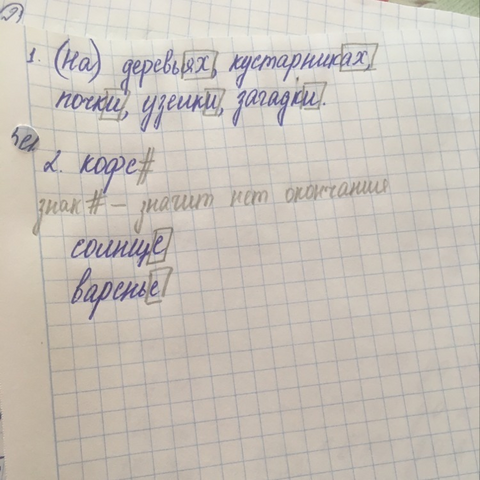 1. (На) деревьях, кустарниках,
почки, узелки, загадки.
2. кофе#
знак # – значит нет окончания
солнце
варенье